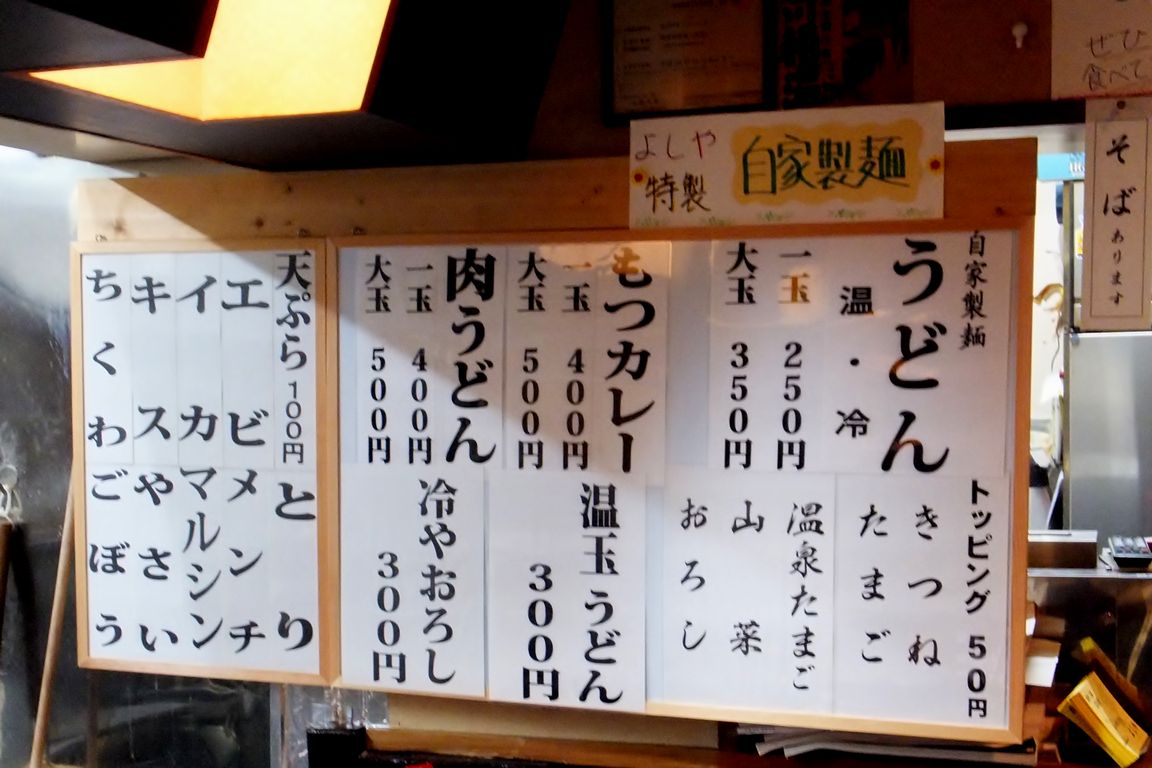 ぜひ
食べて
よしや
特製
自家製麺
そば
あります
自家製麺
うどん
温・冷
一玉 250円
大玉 350円
トッピング 50円
きつね
たまご
温泉たまご
山菜
おろし
もつカレー
一玉 400円
大玉 500円
肉うどん
一玉 400円
大玉 500円
温玉うどん
300円
冷やおろし
300円
天ぷら 100円
エビ
イカ
キス
ちくわ
とり
メンチ
マルシン
やさい
ごぼう